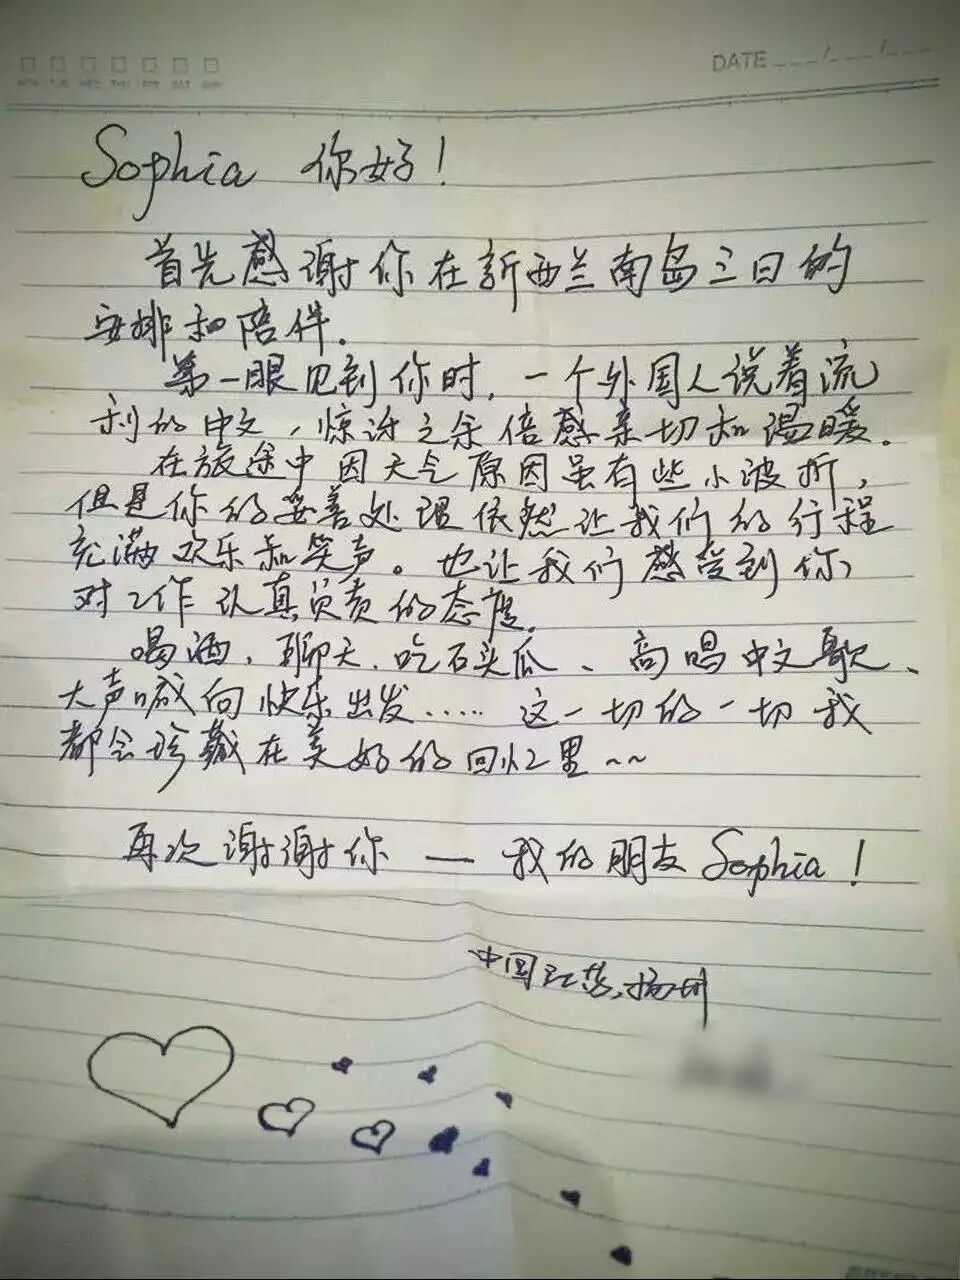 MON TUE WED THU FRI SAT SUN
DATE ___/___/___
Sophia 你好！
首先感谢你在新西兰南岛三日的
安排和陪伴.
第一眼见到你时，一个外国人说着流
利的中文，惊讶之余倍感亲切和温暖.
在旅途中因天气原因虽有些小波折，
但是你的妥善处理依然让我们的行程
充满欢乐和笑声。也让我们感受到你
对工作认真负责的态度.
喝酒、聊天、吃石头瓜、高唱中文歌、
大声喊向快乐出发…… 这一切的一切我
都会珍藏在美好的回忆里~~
再次谢谢你 — 我的朋友 Sophia！
中国江苏，扬州